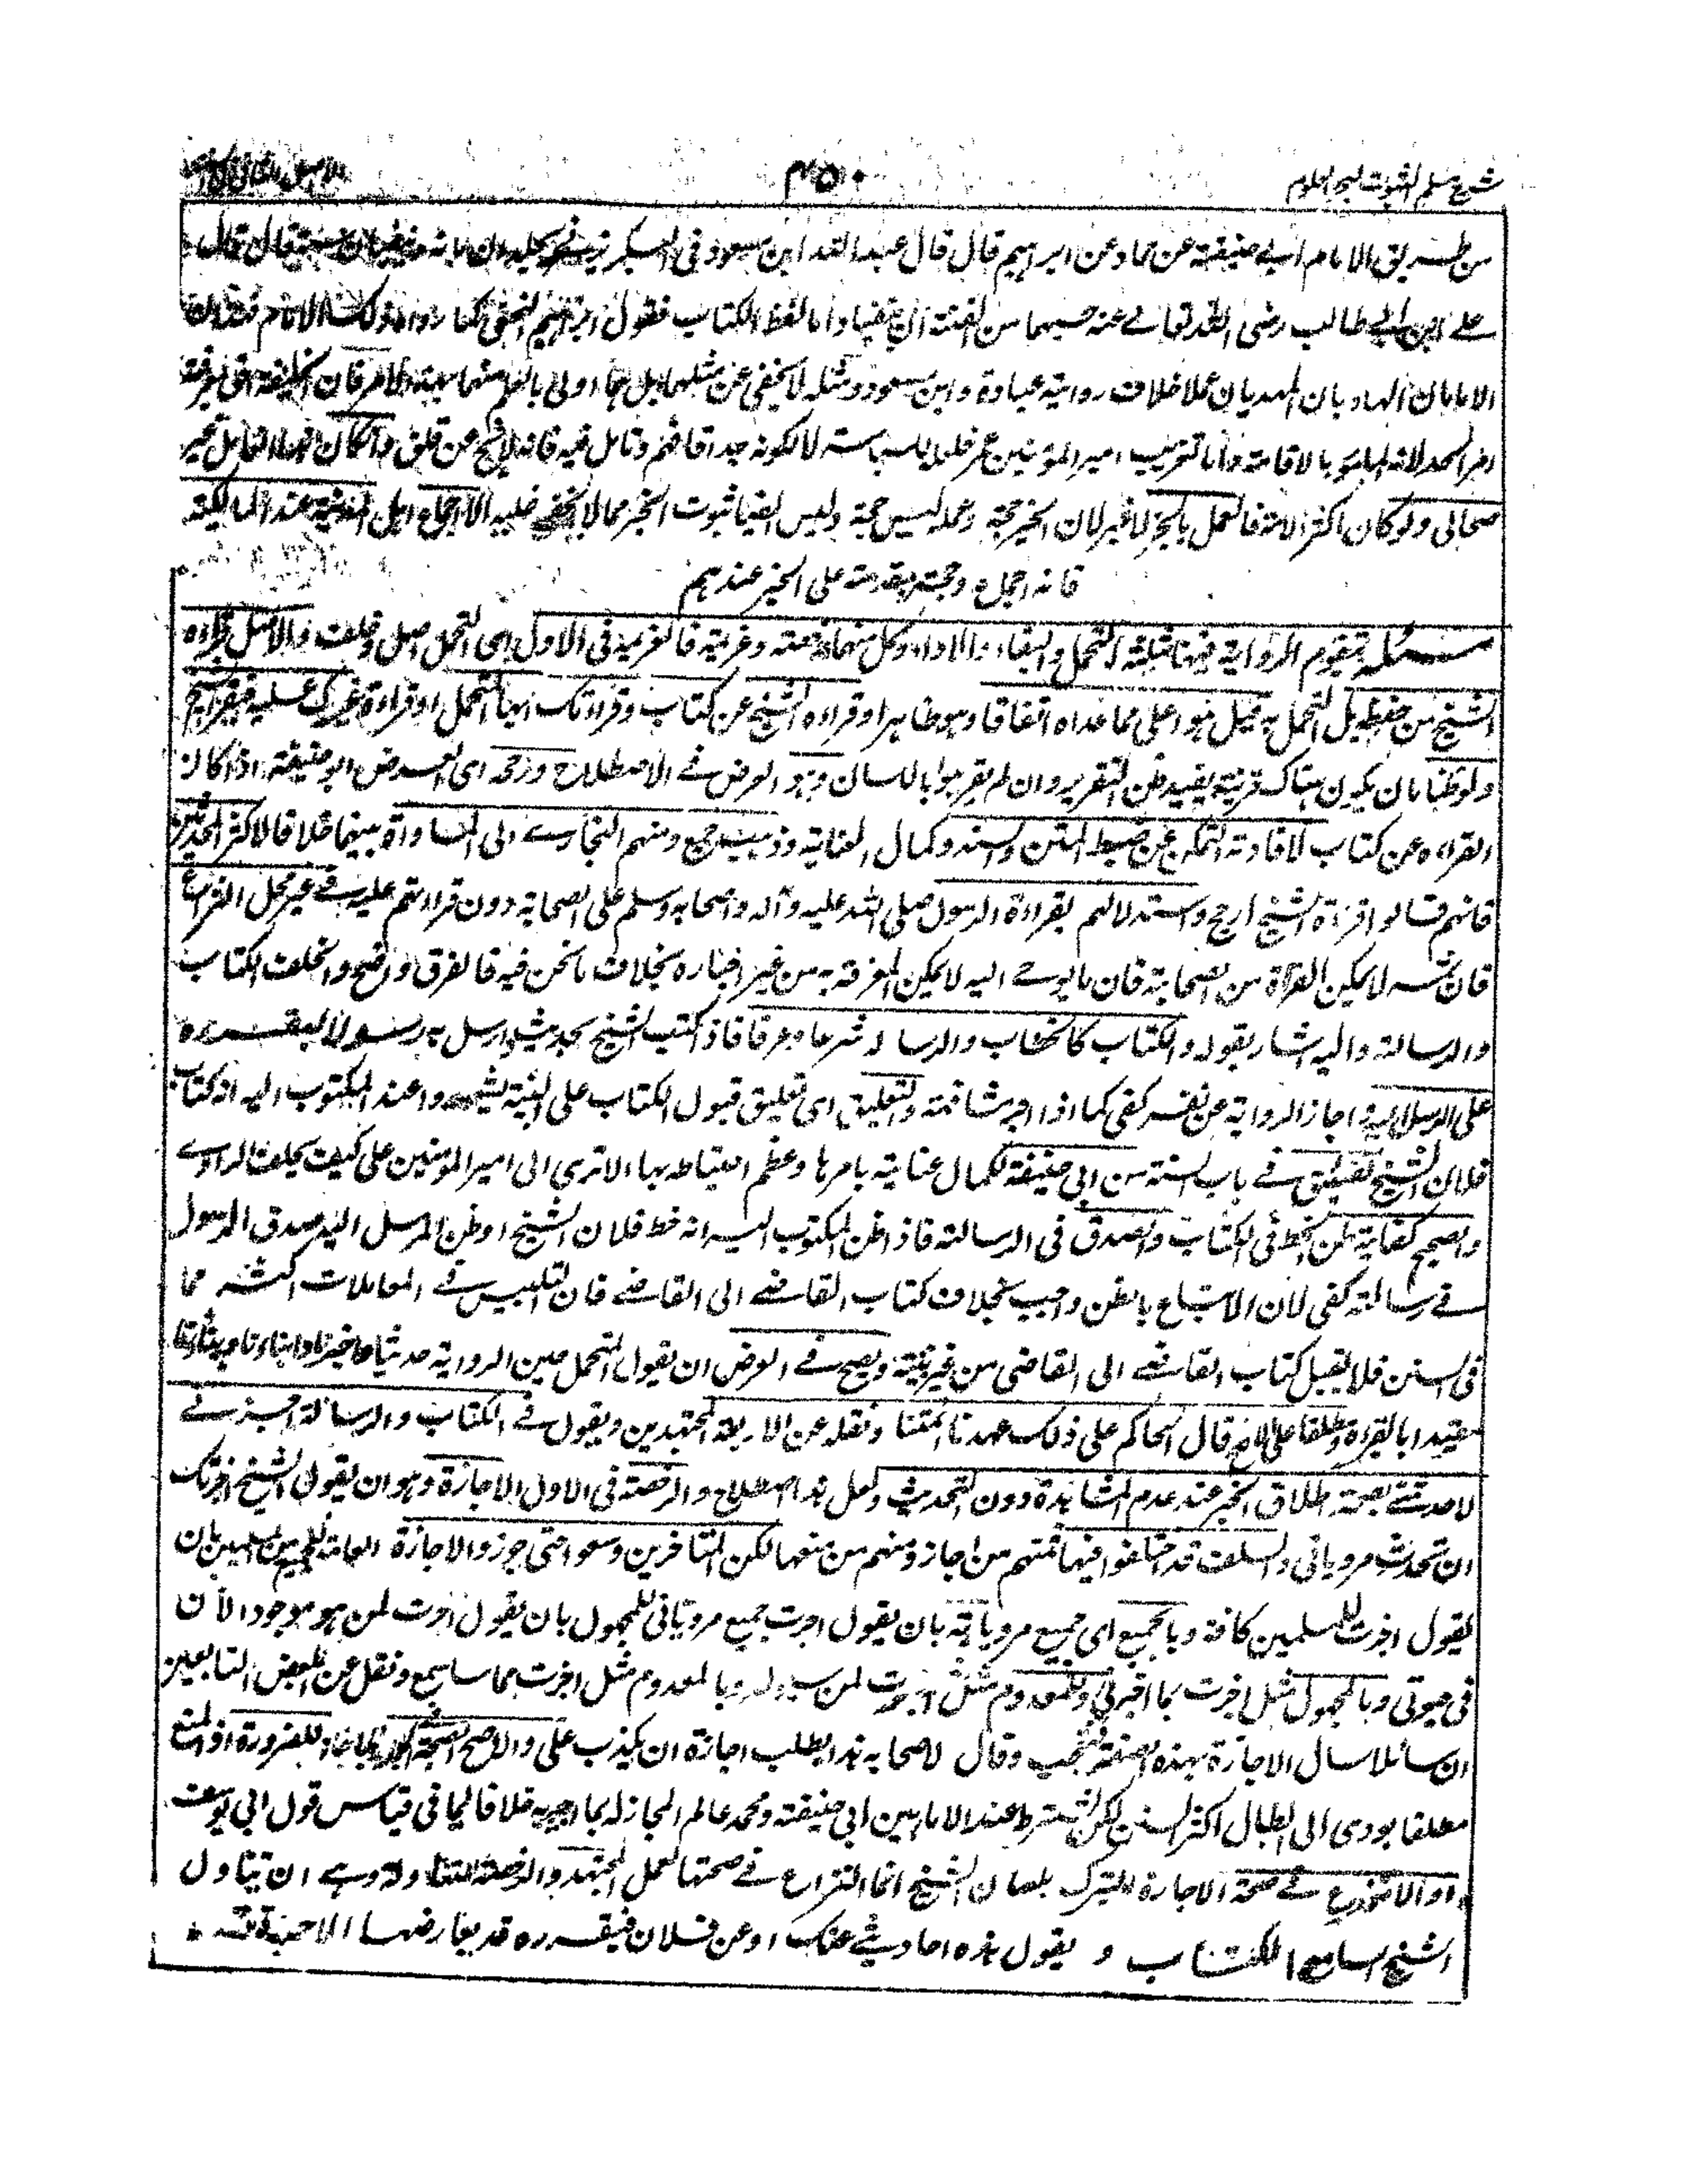 شرح مسلم الثبوت لبحر العلوم
۴۵۰
من طريق الامام ابى حنيفة عن حماد عن ابراهيم قال قال عبد الله ابن مسعود فى البكر يزنى بالبكر يجلدان مائة وينفيان سنة قال قال
على ابن ابى طالب رضى الله تعالى عنه حسبهما من الفتنة ان ينفيا واما لفظ الكتاب فقول ابراهيم النخعى كما رواه
الامامان الهاديان المهديان عملا خلاف رواية عبادة وابن مسعود ومثله لا يخفى عن مثلهما بل هما اولى بالعلم منهما بهذا الامر فان الخليفة احق بمعرفة
امر الحد لانه المامور بالاقامة واما تغريب امير المؤمنين عمر فلعله للسياسة لا لكونه حدا فافهم وتامل فيه فانه لا يخ عن قلق وان كان العامل غير
صحابى ولو كان اكثر الامة فالعمل بالخبر لا غير لان الخبر حجة وعمله ليس حجة وليس ايضا ثبوت الخبر مما لا يخفى عليه الا اجماع اهل المدينة عند المالكية
فانه اجماع وحجة مقدمة على الخبر عندهم
مسئلة تقوم الرواية فيها ثلثة التحمل والبقاء والاداء وكل منها رخصة وعزيمة فالعزيمة فى الاول اى التحمل اصل وخلف والاصل قراءة
الشيخ من حفظه قبل التحمل به قيل هو اعلى مما عداه اتفاقا وهو ظاهر او قراءة الشيخ عن كتاب وقراءتك ايها المتحمل او قراءة غيرك عليه فيقر الشيخ
ولو ظنا بان يكون هناك قرينة يفيد ظن التقرير وان لم يقر هو باللسان وهو العرض فى الاصطلاح ورجحه اى العرض ابو حنيفة اذا كان
القراءة عن كتاب لافادته التمكن عن ضبط المتن والسند وكمال العناية وذهب جمع ومنهم البخارى الى المساواة بينهما خلافا لاكثر المحدثين
فانهم قالوا قراءة الشيخ ارجح واستدلالهم بقراءة الرسول صلى الله عليه وآله واصحابه وسلم على الصحابة دون قراءتهم عليه فى غير محل النزاع
فان ثمه لا يمكن القراءة من الصحابة فان ما يوحى اليه لا يمكن المعرفة به من غير اخباره بخلاف ما نحن فيه فالفرق واضح والخلف الكتاب
والرسالة واليه اشار بقوله والكتاب كالخطاب والرسالة شرعا وعرفا فاذا كتب الشيخ بحديث وارسل به رسولا ليقرءه
على المرسل اليه واجاز الرواية عن نفسه كفى كما اذا اخبر مشافهة والتعليق اى تعليق قبول الكتاب على البينة ليشهدوا عند المكتوب اليه انه كتاب
فلان الشيخ تضييق فى باب السنة من ابى حنيفة لكمال عناية بامرها وعظم احتياطه بها الا ترى الى امير المؤمنين على كيف يحلف الراوى
والصحيح كفاية ظن الخط فى الكتاب والصدق فى الرسالة فاذا ظن المكتوب اليه انه خط فلان الشيخ او ظن المرسل اليه صدق الرسول
فى رسالته كفى لان الاتباع بالظن واجب بخلاف كتاب القاضى الى القاضى فان التلبيس فى المعاملات اكثر مما
فى السنن فلا يقبل كتاب القاضى الى القاضى من غير بينة ويصح فى العرض ان يقول المتحمل حين الرواية حدثنا واخبرنا وانباءنا
مقيدا بالقراءة ومطلقا على الاصح قال الحاكم على ذلك عهدنا ائمتنا ونقله عن الاربعة المجتهدين ويقول فى الكتاب والرسالة اخبرنى
لا حدثنى بصحة اطلاق الخبر عند عدم المشاهدة دون التحديث ولعل هذا اصطلاح والرخصة فى الاول الاجازة وهو ان يقول الشيخ اجزتك
ان تحدث مروياتى والسلف قد اختلفوا فيها فمنهم من اجاز ومنهم من منعها لكن المتأخرين وسعوا حتى جوزوا الاجازة العامة بان
يقول اجزت للمسلمين كافة وبالجميع اى جميع مروياته بان يقول اجزت جميع مروياتى للمجهول بان يقول اجزت لمن هو موجود الان
فى حيوتى وبالمجهول مثل اجزت بما اخبرنى وللمعدوم مثل اجزت لمن سيولد وبالمعدوم مثل اجزت بما ساسمع ونقل عن بعض التابعين
ان سائلا سال الاجازة بهذه الصفة فتعجب وقال لاصحابه هذا يطلب اجازة ان يكذب على والاصح الصحة للضرورة اذ المنع
مطلقا يودى الى ابطال اكثر السنن لكن يشترط عند الامامين ابى حنيفة ومحمد عالم المجاز له بما اجيز به خلافا لما فى قياس قول ابى يوسف
فى صحة الاجازة للتبرك بلسان الشيخ انما النزاع فى صحتها لعمل المجتهد والرخصة المناولة وهى ان يناول
الشيخ السامع الكتاب و يقول هذه احاديثى عنك او عن فلان فيقرره قد يعارضها الاحيقة